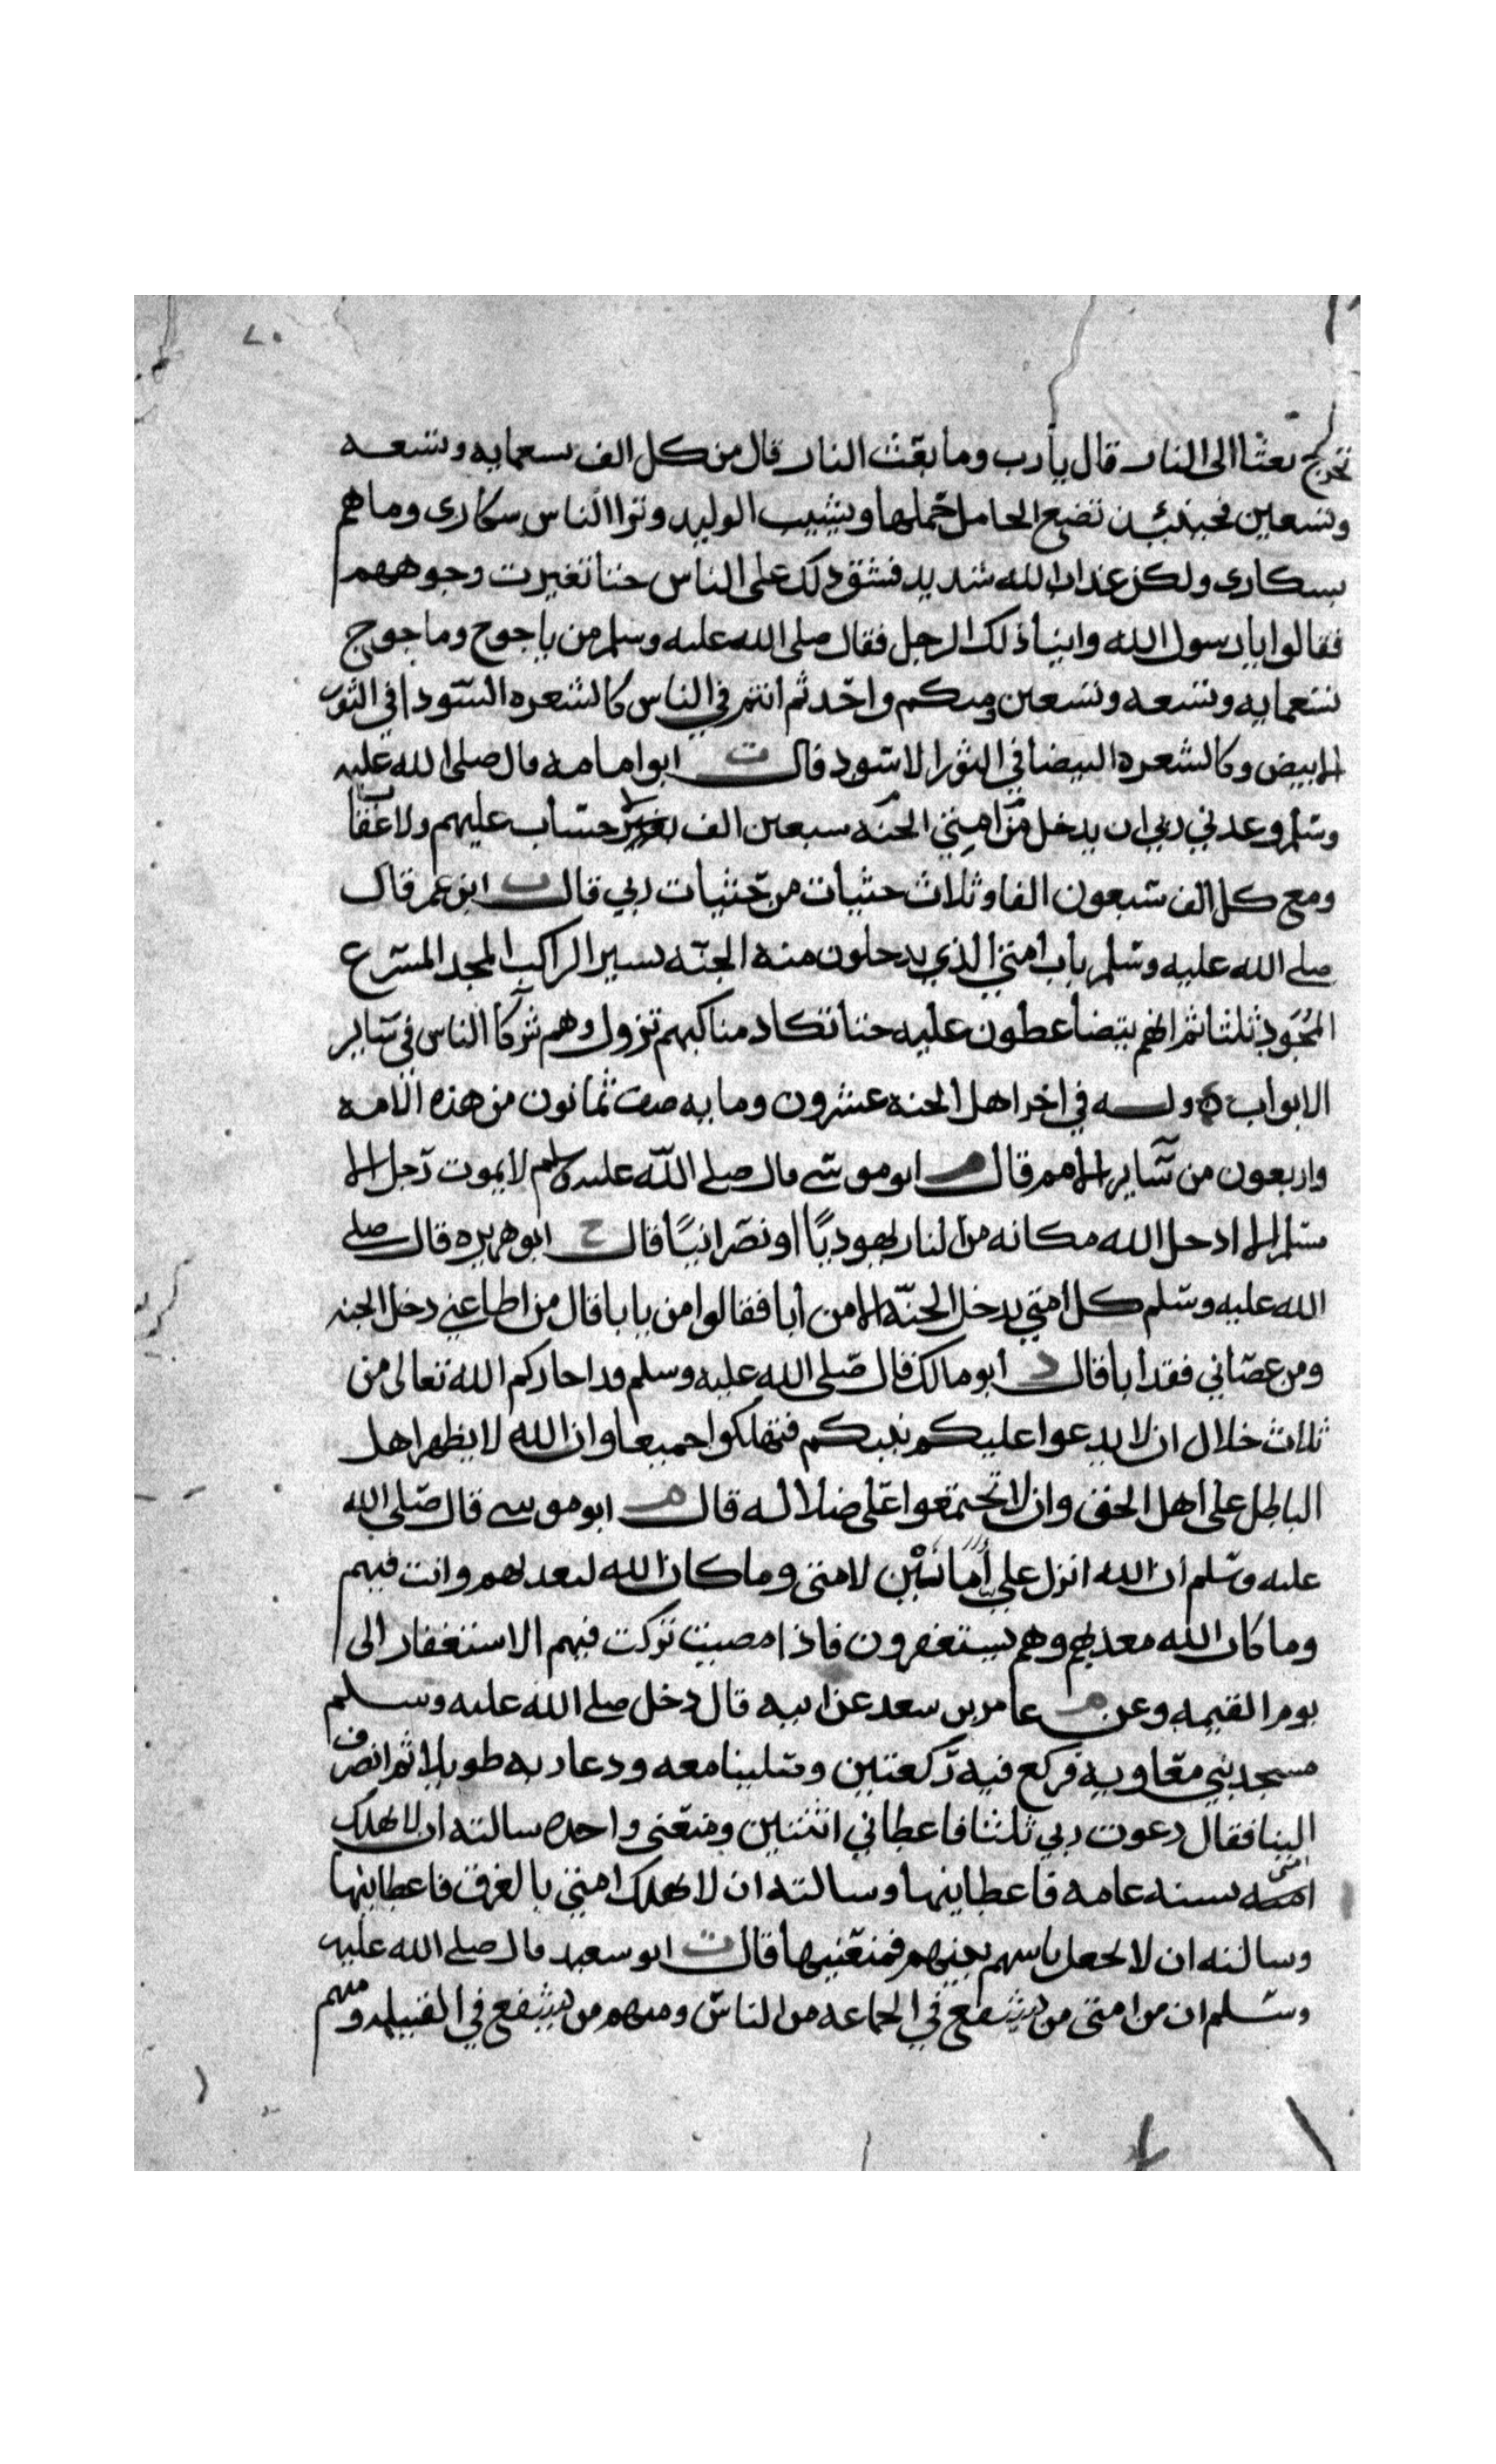 ٢٠
تخرج بعثا الى النار قال يارب وما بعث النار قال من كل الف تسعمايه وتسعه
وتسعين فحينئذ تضع الحامل حملها ويشيب الوليد وترا الناس سكارى وما هم
بسكارى ولكن عذاب الله شديد فشق ذلك على الناس حتا تغيرت وجوههم
فقالوا يا رسول الله واينا ذلك الرجل فقال صلى الله عليه وسلم من ياجوج وماجوج
تسعمايه وتسعه وتسعين ومنكم واحد ثم انتم في الناس كالشعره السودا في الثور
الابيض وكالشعره البيضا في الثور الاسود قال ت ابو امامه قال صلى الله عليه
وسلم وعدني ربي ان يدخل من امتي الجنه سبعين الف لا حساب عليهم ولا عقاب
ومع كل الف سبعون الفا وثلاث حثيات من حثيات ربي قال ت ابن عمر قال
صلى الله عليه وسلم باب امتي الذي يدخلون منه الجنه يسير الراكب المجد المسرع
المجود ثلثا ثم انهم يتضاعطون عليه حتا تكاد مناكبهم تزول وهم شركا الناس في ساير
الابواب ٥ وله في اخر اهل الجنه عشرون ومايه صف ثمانون من هذه الامه
واربعون من ساير الامم قال م ابو موسى قال صلى الله عليه وسلم لا يموت رجل
مسلم الا ادخل الله مكانه من النار يهوديًا او نصرانيًا قال خ ابو هريره قال صلى
الله عليه وسلم كل امتي يدخل الجنه الا من أبا فقالوا من يابا قال من اطاعني دخل الجنه
ومن عصاني فقد أبا قال د أبو مالك قال صلى الله عليه وسلم قد اجاركم الله تعالى من
ثلاث خلال ان لا يدعوا عليكم نبيكم فتهلكوا جميعا وان الله لا يظهر اهل
الباطل على اهل الحق وان لا تجتمعوا على ضلاله قال م ابو موسى قال صلى الله
عليه وسلم ان الله انزل علي أمانين لامتي وما كان الله ليعذبهم وانت فيهم
وما كان الله معذبهم وهم يستغفرون فاذا مضيت تركت فيهم الاستغفار الى
يوم القيمه وعن م عامر بن سعد عن ابيه قال دخل صلى الله عليه وسلم
مسجد بني معاويه فركع فيه ركعتين وصلينا معه ودعا ربه طويلا ثم انصرف
الينا فقال دعوت ربي ثلثا فاعطاني اثنتين ومنعني واحده سالته ان لا يهلك
امتي بسنه عامه فاعطانيها وسالته ان لا يهلك امتي بالغرق فاعطانيها
وسالته ان لا يجعل باسهم بينهم فمنعنيها قال ت ابو سعيد قال صلى الله عليه
وسلم ان من امتي من يشفع في الجماعه من الناس ومنهم من يشفع في القبيله ومنهم